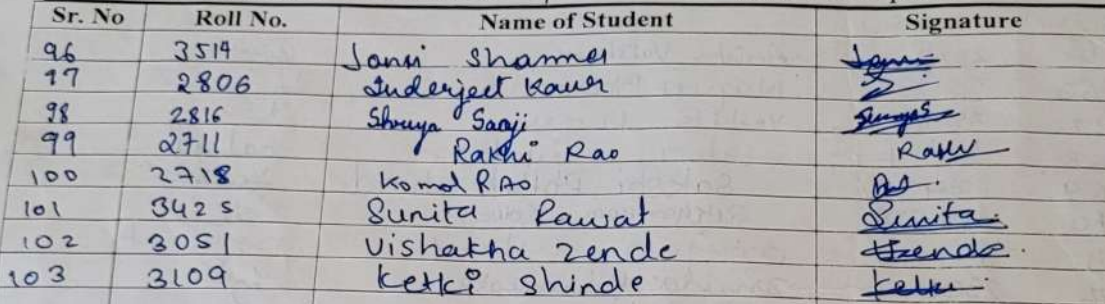 Sr. No Roll No. Name of Student Signature
96 3514 Janvi Sharma
97 2806 Inderjeet Kaur
98 2816 Shreya Saaji
99 2711 Rakhi Rao Rakhi
100 2718 Komal RAO
101 3425 Sunita Rawat Sunita
102 3051 Vishakha Zende Zende
103 3109 Ketki Shinde Ketki